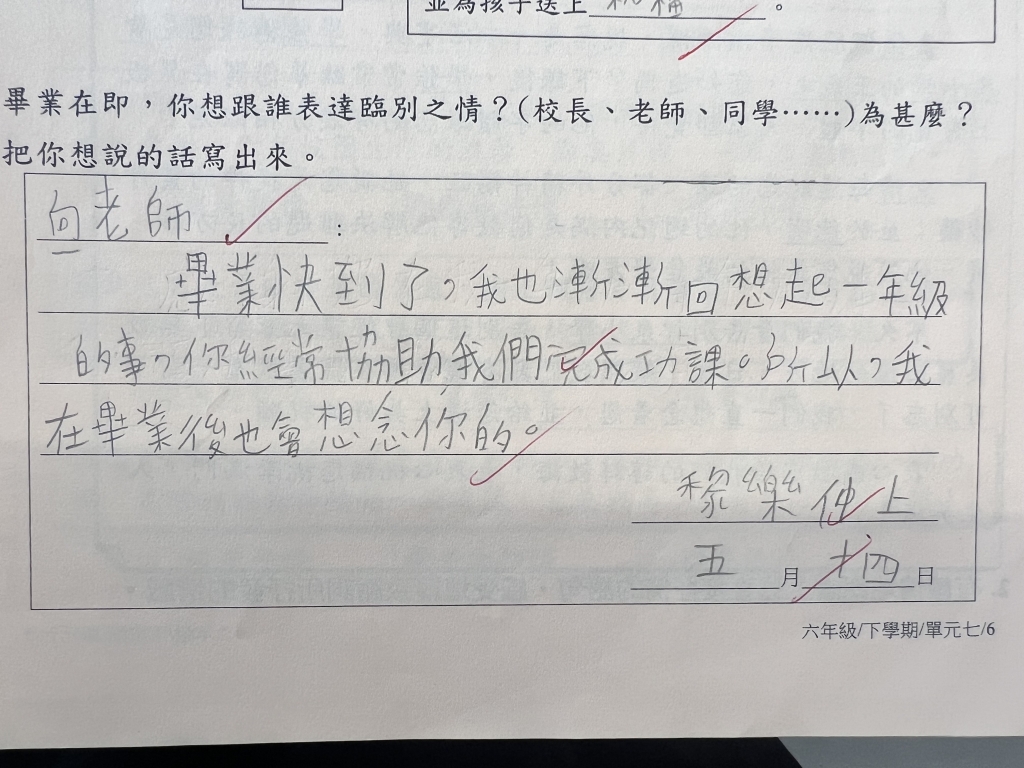 並為孩子送上 祝福 。
畢業在即，你想跟誰表達臨別之情？(校長、老師、同學⋯⋯)為甚麼？
把你想說的話寫出來。
向老師：
畢業快到了，我也漸漸回想起一年級
的事，你經常協助我們完成功課。所以，我
在畢業後也會想念你的。
黎樂仲上
五月十四日
六年級/下學期/單元七/6